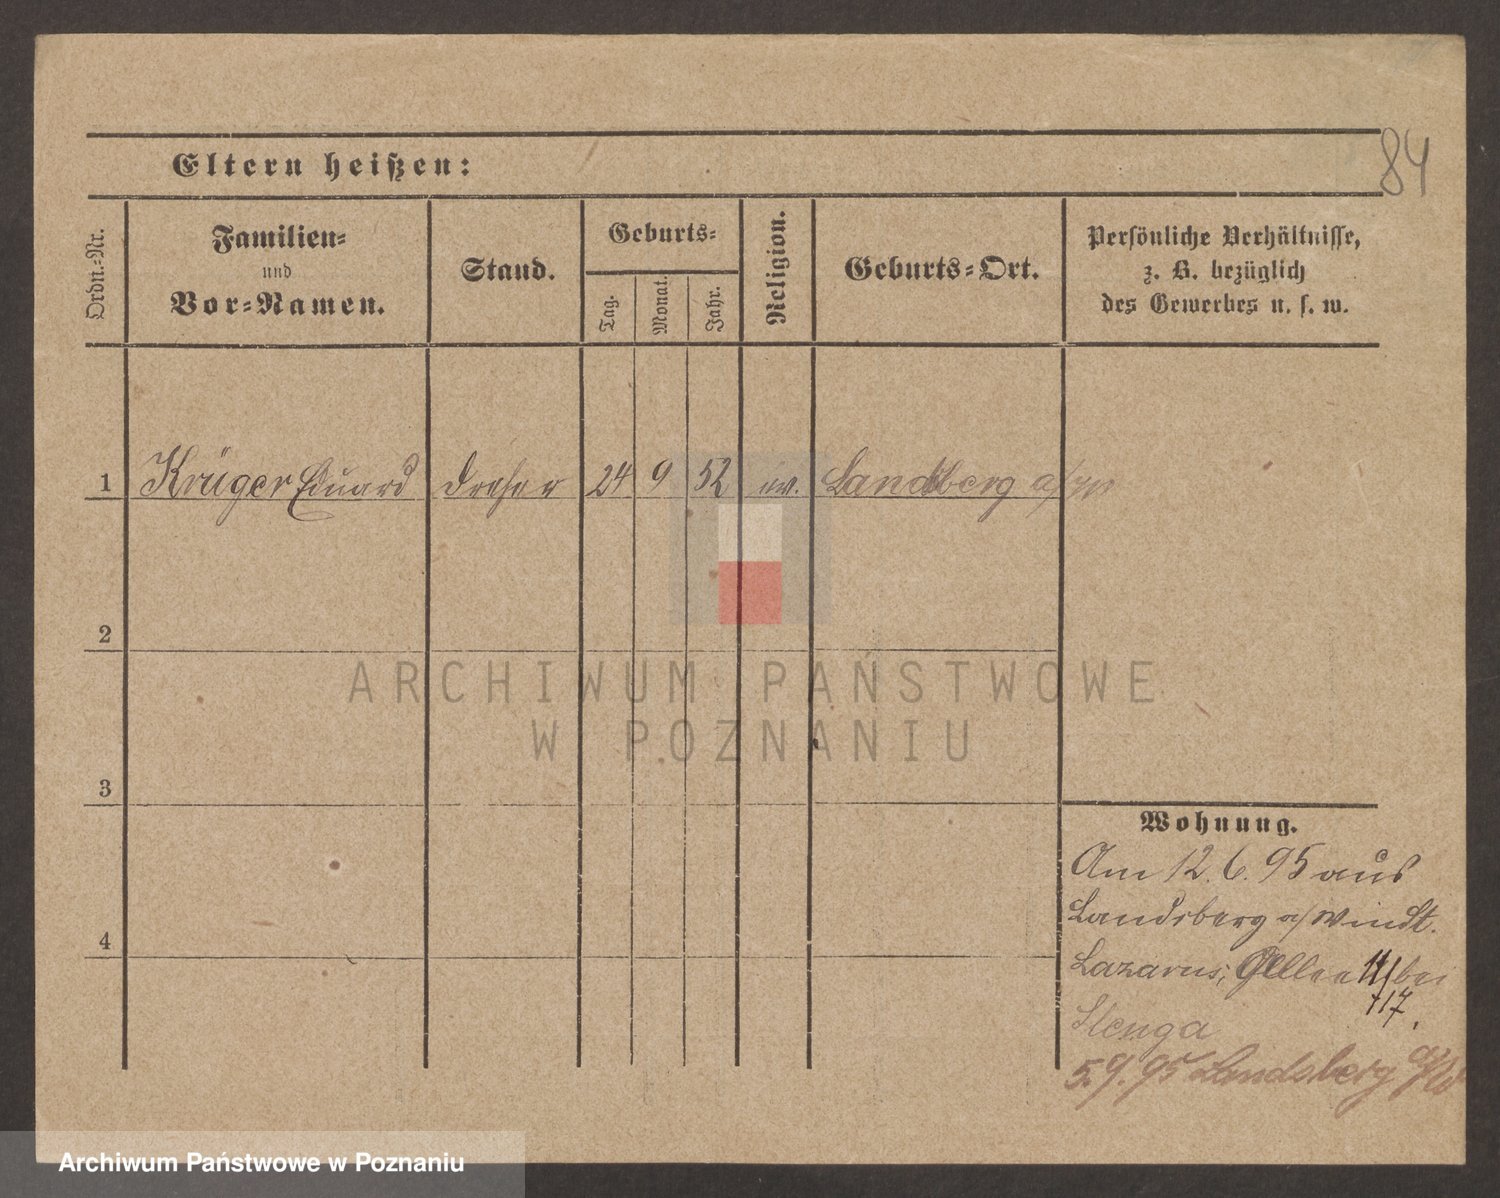 84
Eltern heißen:
Ordn.-Nr.
Familien-
und
Vor-Namen.
Stand.
Geburts-
Tag.
Monat.
Jahr.
Religion.
Geburts-Ort.
Persönliche Verhältnisse,
z. B. bezüglich
des Gewerbes u. s. w.
1 Krüger Eduard Dreher 24 9 52 ev. Landsberg a/W
2
3
4
ARCHIWUM PAŃSTWOWE
W POZNANIU
Wohnung.
Am 12.6.95 aus
Landsberg a/
Lazarus, 11/ bei
5.9.95 Landsberg a/W
Archiwum Państwowe w Poznaniu